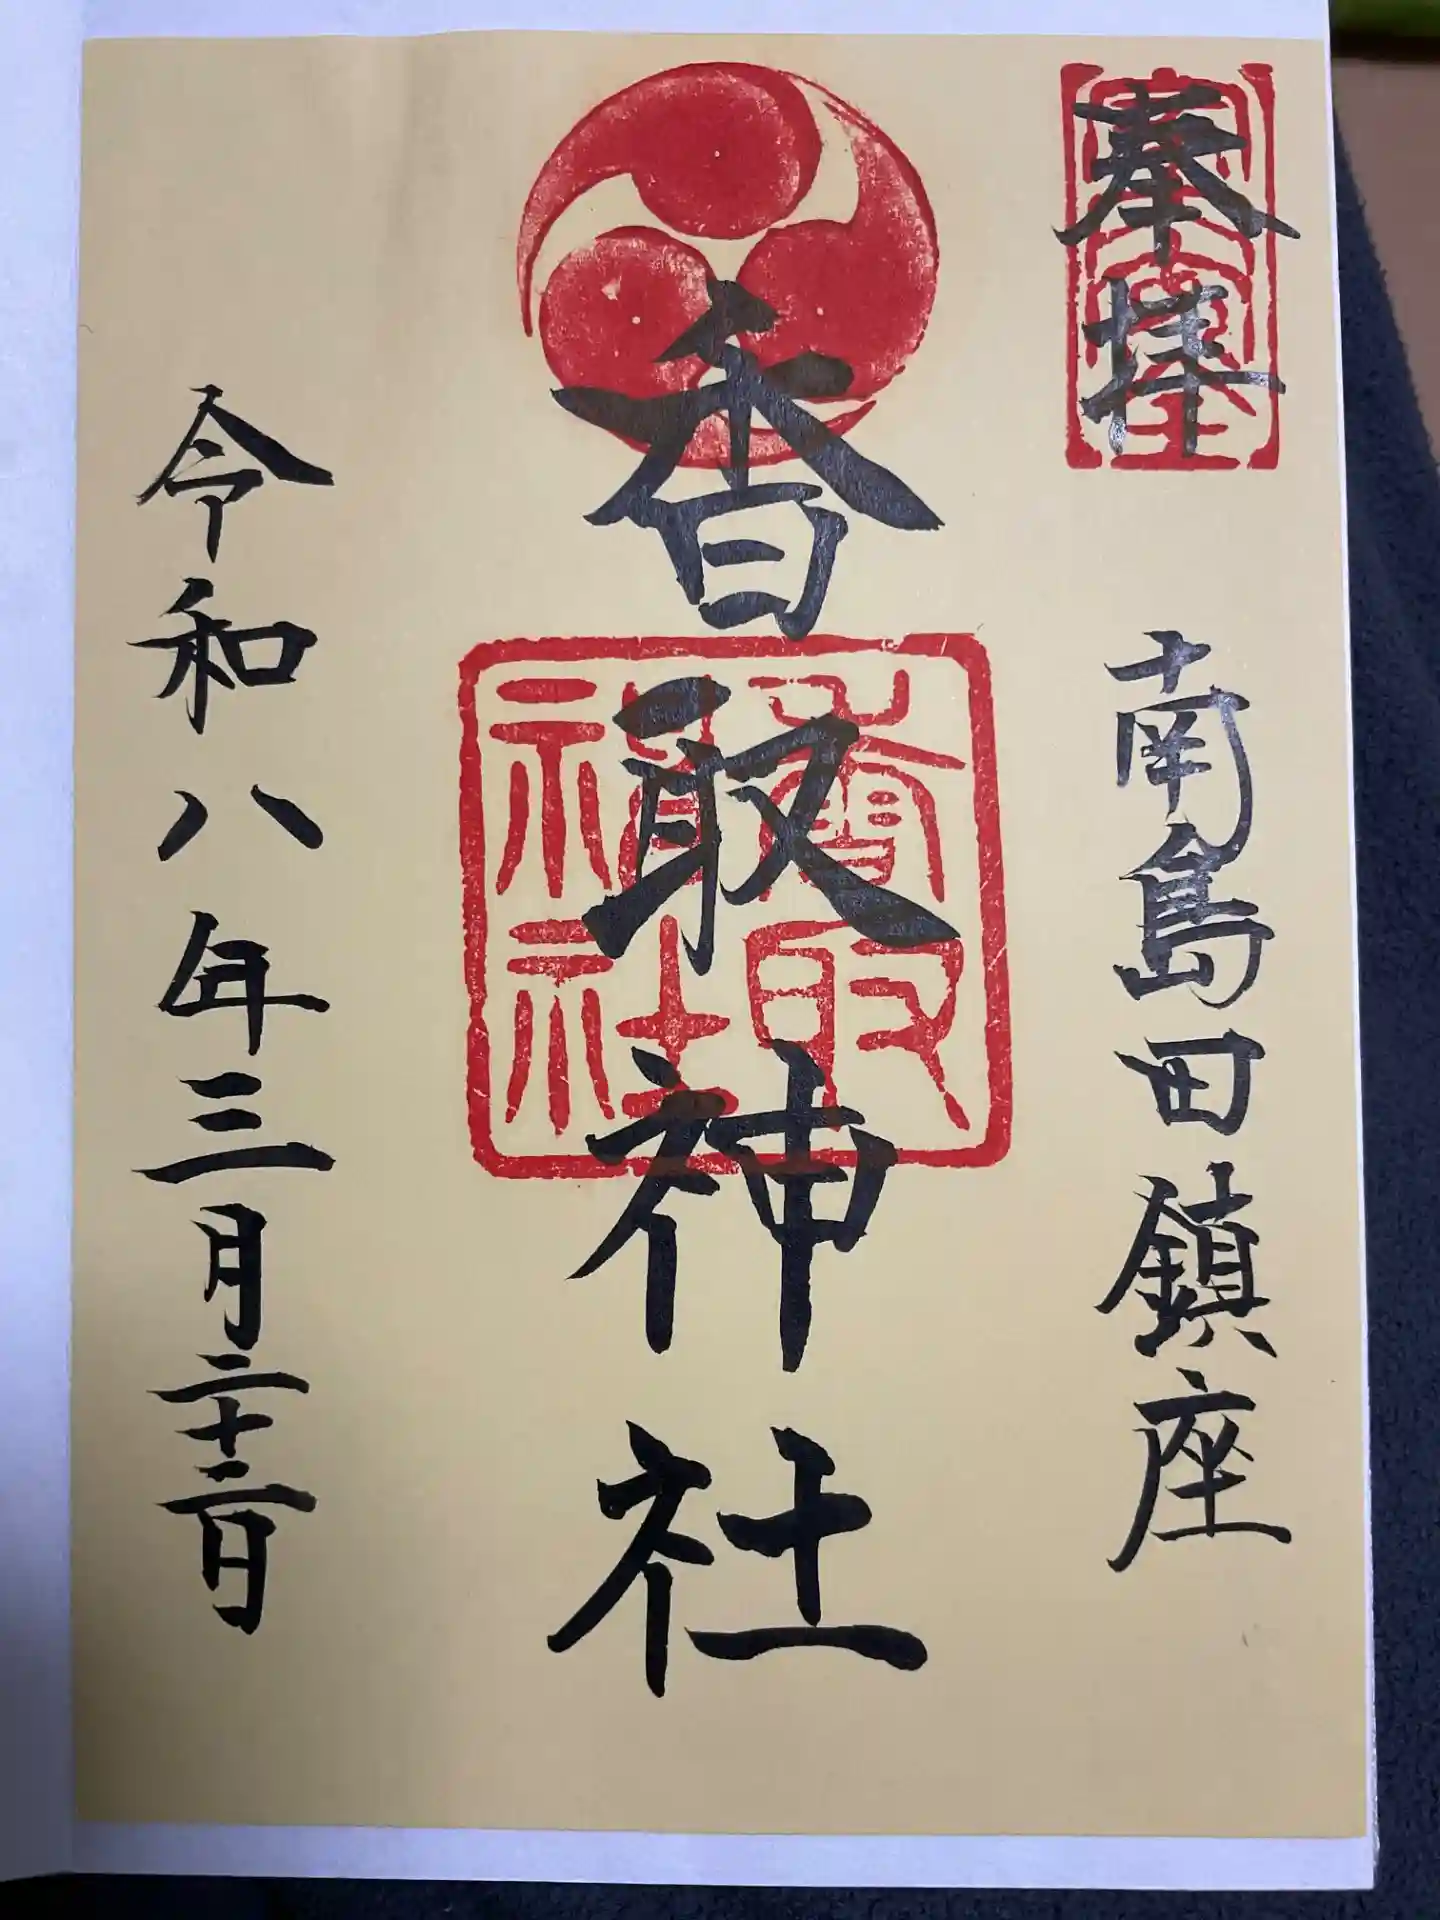 奉拝
南島田鎮座
香取神社
令和八年三月二十二日